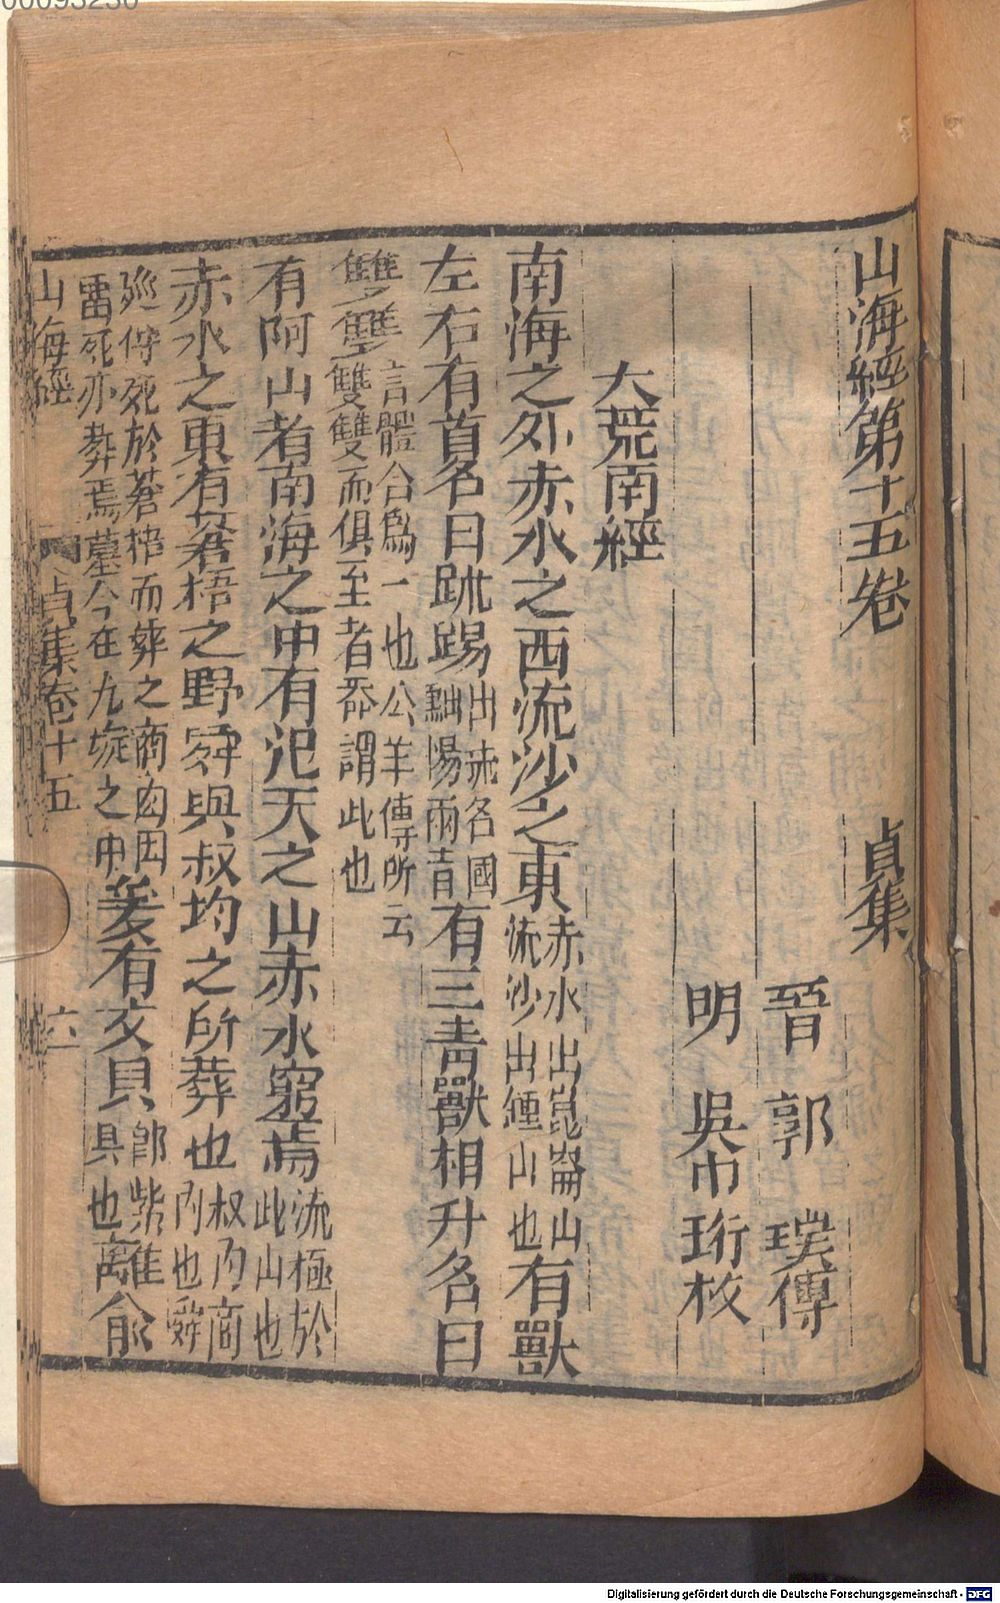 山海經第十五卷 貞集
晉 郭 璞傳
明 吳中珩校
大荒南經
南海之外赤水之西流沙之東赤水出崑崙山流沙出鍾山也有獸
左右有首名曰跊踢出𤝞名國黜陽兩音有三青獸相幷名曰
雙雙言體合爲一也公羊傳所云雙雙而俱至者葢謂此也
有阿山者南海之中有氾天之山赤水窮焉流極於此山也
赤水之東有蒼梧之野舜與叔均之所葬也叔均商均也舜
巡狩死於蒼梧而葬之商均因留死亦葬焉墓今在九疑之中爰有文貝離俞即紫貝也
山海經 貞集卷十五 六
Digitalisierung gefördert durch die Deutsche Forschungsgemeinschaft - DFG